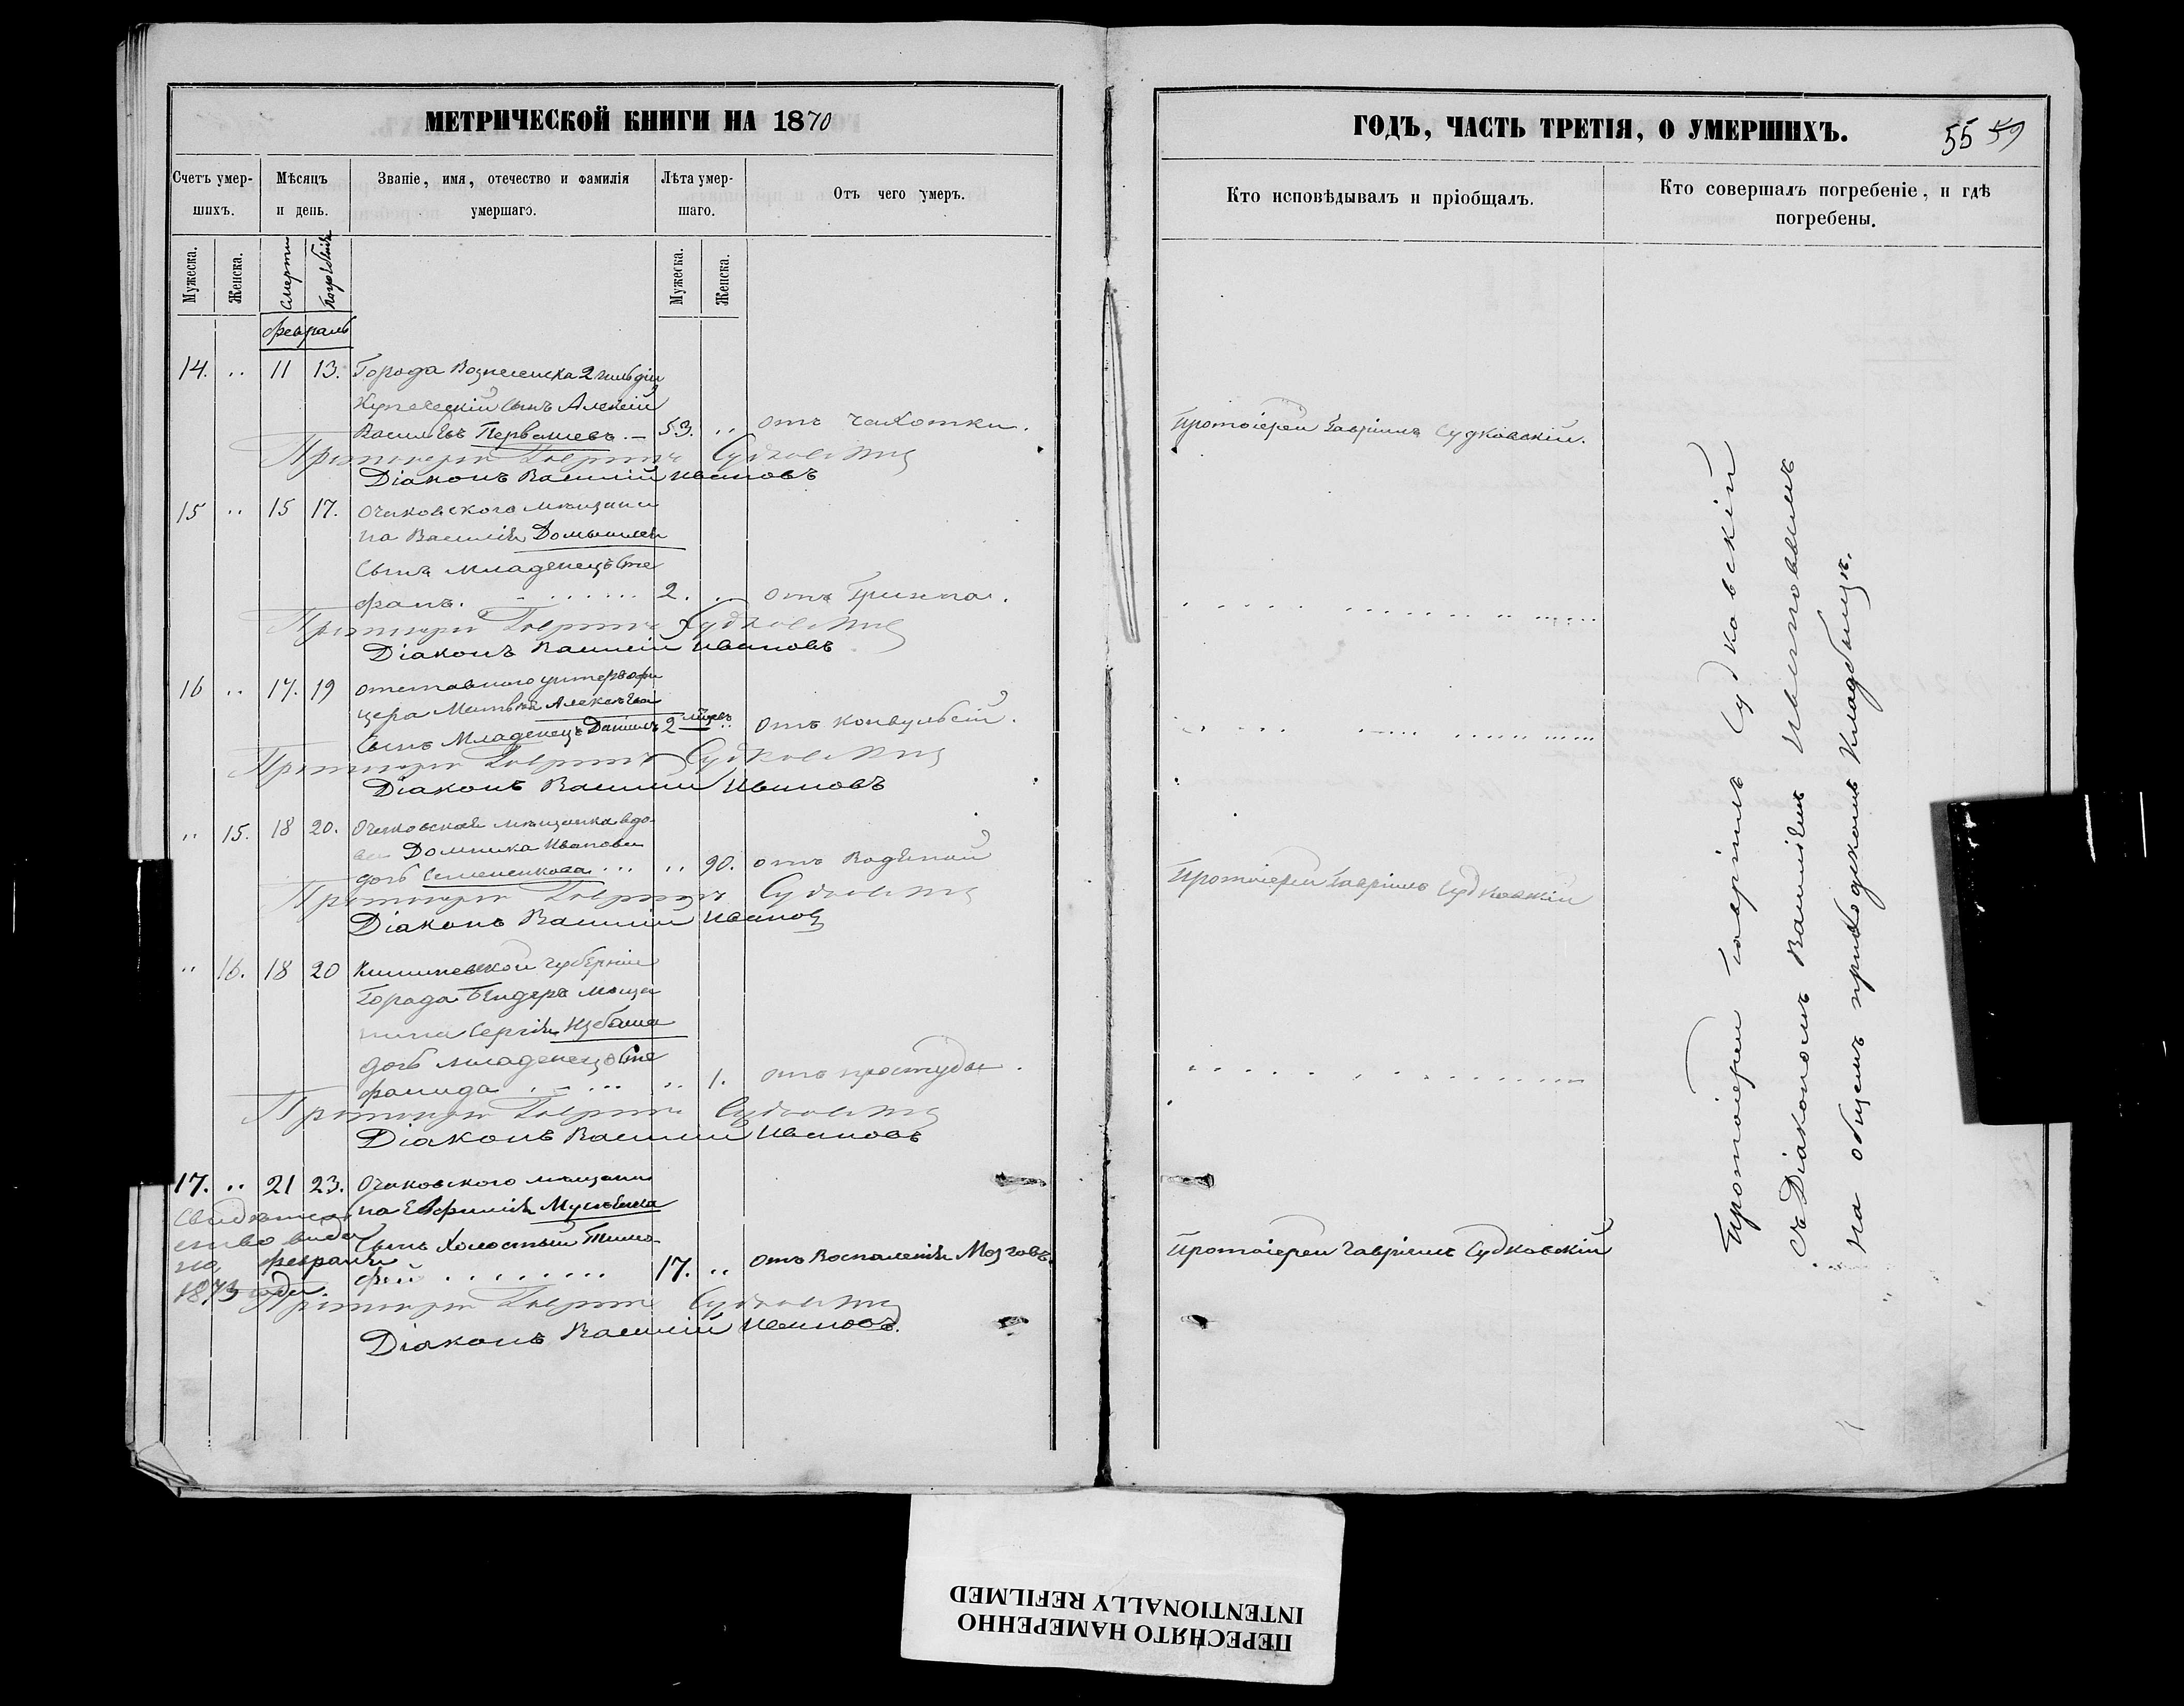 МЕТРИЧЕСКОЙ КНИГИ НА 1870
Счетъ умер-
шихъ.
Мѣсяцъ
и день.
Званіе, имя, отечество и фамилія
умершаго.
Лѣта умер-
шаго.
Отъ чего умеръ.
Мужеска.
Женска.
Смерти
Погребенія
Мужеска.
Женска.
февраль
14. .. 11 13. Города Вознесенска 2 гильдіи
Купеческій сынъ Алексѣй
Васильевъ Первашевъ. – 53. .. отъ чахотки.
Протоіерей Гавріилъ Судковскій
Діаконъ Василій Ивановъ
15 .. 15 17. Очаковскаго мѣщани
на Василія
сынъ младенецъ Сте
фанъ. 2. .. отъ
Протоіерей Гавріилъ Судковскій
Діаконъ Василій Ивановъ
16 .. 17. 19 отставнаго унтеръ офи
цера Матвѣя Алексѣева
сынъ Младенецъ Даніилъ 2 .. отъ конвульсій.
Протоіерей Гавріилъ Судковскій
Діаконъ Василій Ивановъ
.. 15. 18 20. Очаковская мѣщанка вдо
ва Домника Иванова
дочь Семененкова ... .. 90. отъ водяной
Протоіерей Гавріилъ Судковскій
Діаконъ Василій Ивановъ
.. 16. 18 20 Кишиневской губерніи
Города Бендеръ мѣща
нина Сергія Избаша
дочь младенецъ Сте
фанида .. 1. отъ простуды.
Протоіерей Гавріилъ Судковскій
Діаконъ Василій Ивановъ
17. .. 21 23. Очаковскаго мѣщани
на Евфимія
сынъ Холостый Тимо
фей 17. .. отъ воспаленія мозговъ.
Свидѣтель
ство выда
но, февраля
1873 года.
Протоіерей Гавріилъ Судковскій
Діаконъ Василій Ивановъ.
ГОДЪ, ЧАСТЬ ТРЕТІЯ, О УМЕРШИХЪ.
55 59
Кто исповѣдывалъ и пріобщалъ.
Кто совершалъ погребеніе, и гдѣ
погребены.
Протоіерей Гавріилъ Судковскій.
Протоіерей Гавріилъ Судковскій
Протоіерей Гавріилъ Судковскій
Протоіерей Гавріилъ Судковскій
съ Діакономъ Василіемъ Ивановымъ
на общемъ приходскомъ Кладбищѣ.
ПЕРЕСНЯТО НАМЕРЕННО
INTENTIONALLY REFILMED